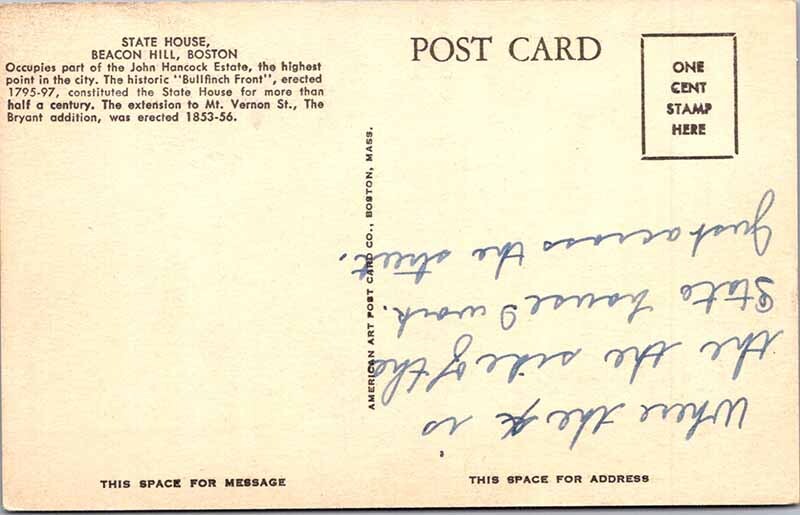 STATE HOUSE,
BEACON HILL, BOSTON
Occupies part of the John Hancock Estate, the highest
point in the city. The historic "Bullfinch Front", erected
1795-97, constituted the State House for more than
half a century. The extension to Mt. Vernon St., The
Bryant addition, was erected 1853-56.
POST CARD
ONE
CENT
STAMP
HERE
AMERICAN ART POST CARD CO., BOSTON, MASS.
Where the x is
the the side of the
State house I work.
Just across the street.
THIS SPACE FOR MESSAGE
THIS SPACE FOR ADDRESS